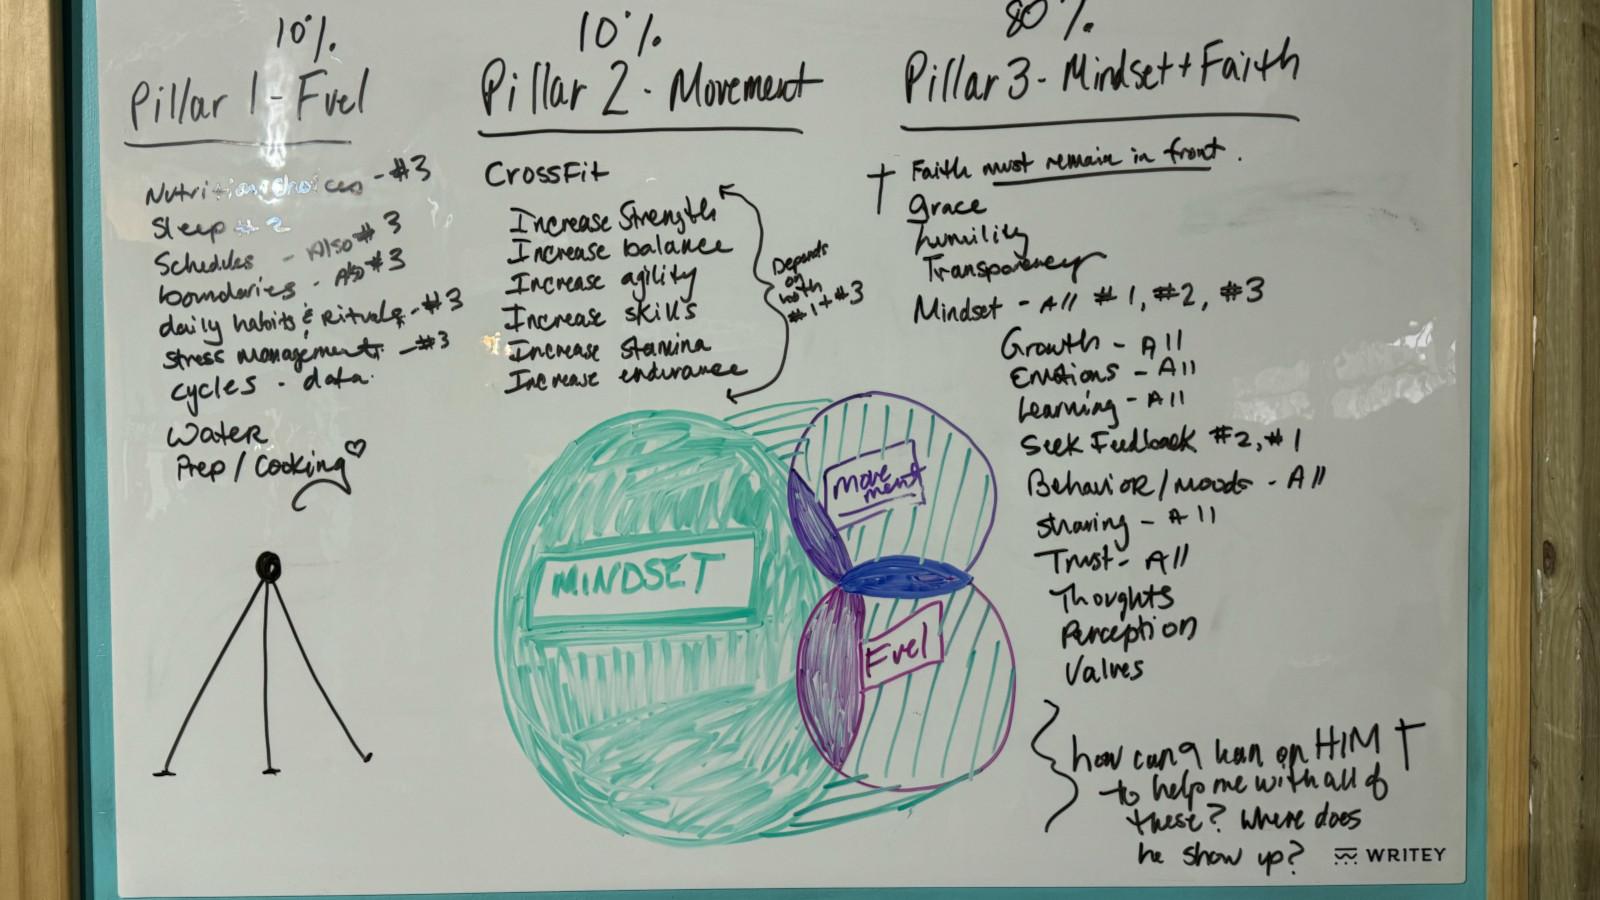 10%
Pillar 1 - Fuel
Nutrition choices - #3
Sleep # 2
Schedules - Also # 3
boundaries - Also #3
daily habits & Rituals - #3
stress management - #3
cycles - data.
Water
Prep / Cooking
10%
Pillar 2 - Movement
CrossFit
Increase Strength
Increase balance
Increase agility
Increase skills
Increase stamina
Increase endurance
Depends
on
both
#1 + #3
80%
Pillar 3 - Mindset + Faith
Faith must remain in front.
grace
humility
Transparency
Mindset - All #1, #2, #3
Growth - All
Emotions - All
Learning - All
Seek Feedback #2, #1
Behavior / moods - All
sharing - All
Trust - All
Thoughts
Perception
Values
how can I lean on HIM
to help me with all of
these? Where does
he show up?
MINDSET
Move
ment
Fuel
WRITEY